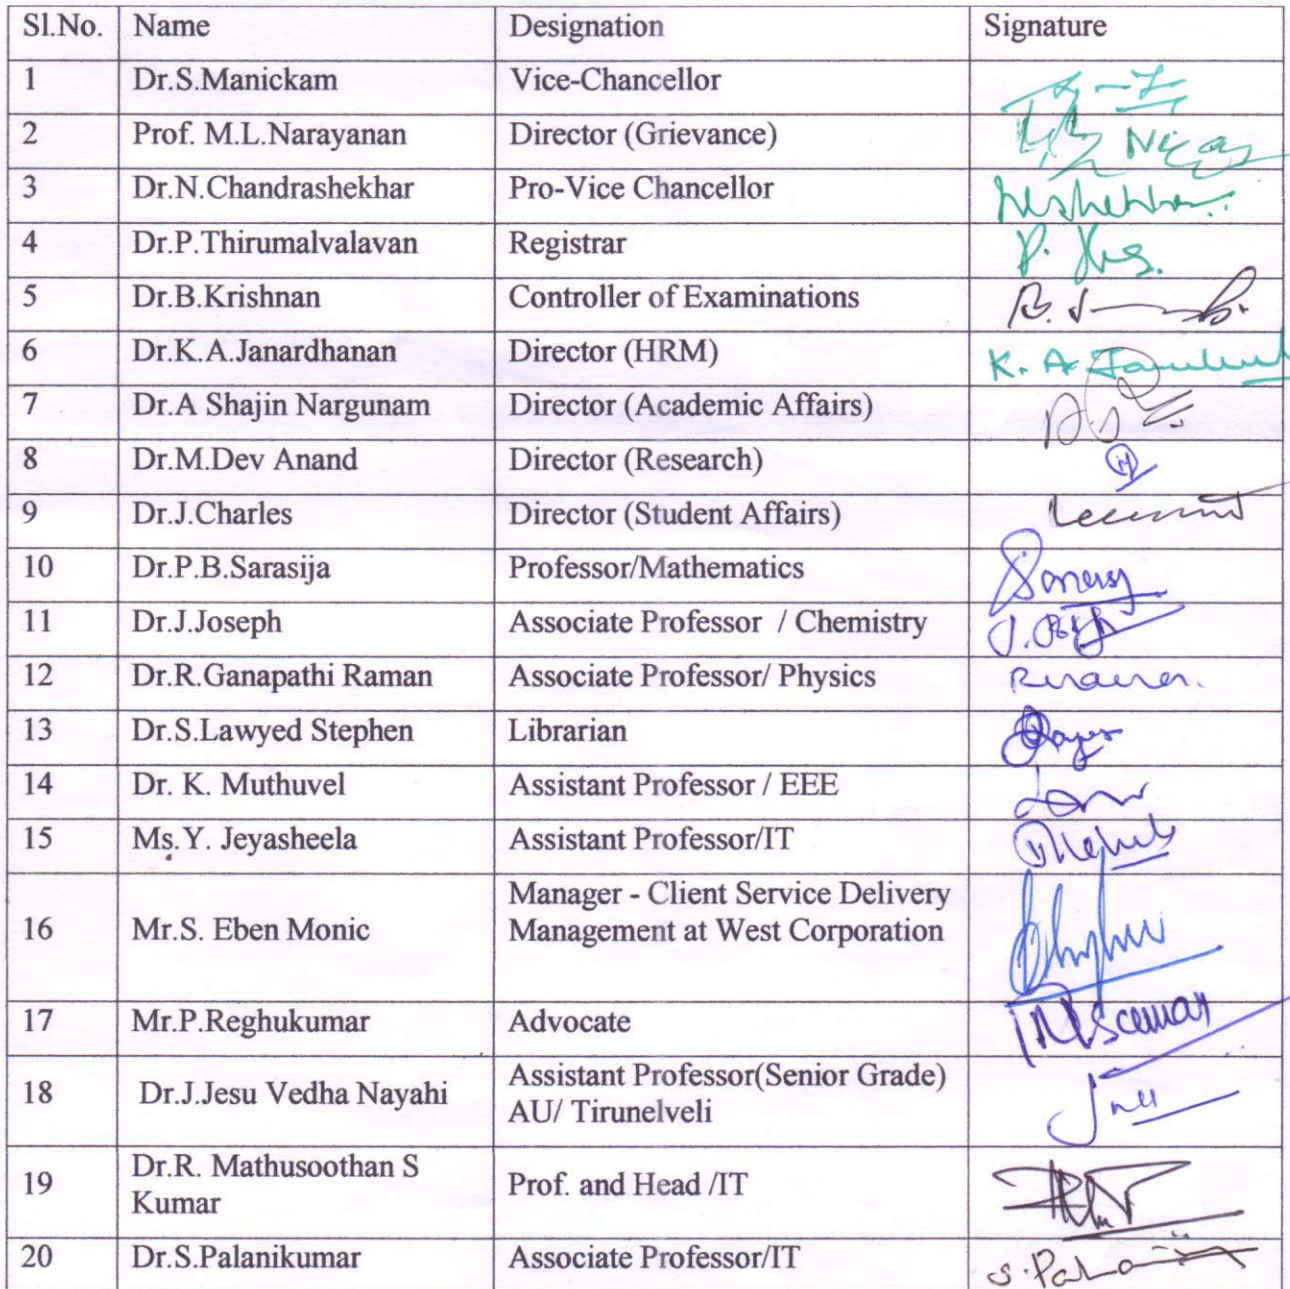 Sl.No. Name Designation Signature
1 Dr.S.Manickam Vice-Chancellor
2 Prof. M.L.Narayanan Director (Grievance)
3 Dr.N.Chandrashekhar Pro-Vice Chancellor
4 Dr.P.Thirumalvalavan Registrar
5 Dr.B.Krishnan Controller of Examinations
6 Dr.K.A.Janardhanan Director (HRM) K. A
7 Dr.A Shajin Nargunam Director (Academic Affairs)
8 Dr.M.Dev Anand Director (Research)
9 Dr.J.Charles Director (Student Affairs)
10 Dr.P.B.Sarasija Professor/Mathematics
11 Dr.J.Joseph Associate Professor / Chemistry
12 Dr.R.Ganapathi Raman Associate Professor/ Physics
13 Dr.S.Lawyed Stephen Librarian
14 Dr. K. Muthuvel Assistant Professor / EEE
15 Ms.Y. Jeyasheela Assistant Professor/IT
Manager - Client Service Delivery
16 Mr.S. Eben Monic Management at West Corporation
17 Mr.P.Reghukumar Advocate
Assistant Professor(Senior Grade)
18 Dr.J.Jesu Vedha Nayahi
AU/ Tirunelveli
Dr.R. Mathusoothan S
19 Prof. and Head /IT
Kumar
20 Dr.S.Palanikumar Associate Professor/IT